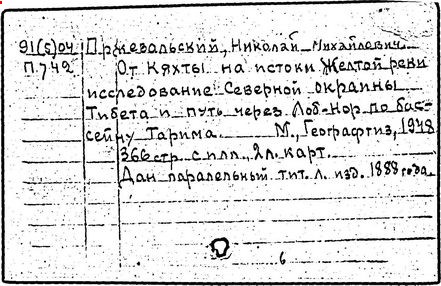 91(5)04 Пржевальский, Николай Михайлович.
П.742 От Кяхты на истоки Желтой реки
исследование Северной окраины
Тибета и путь через Лоб-Нор по бас-
сейну Тарима. М., Географгиз, 1948
366 стр. с илл., 2 л. карт.
Дан паралельный тит. л. изд. 1888 года.
6